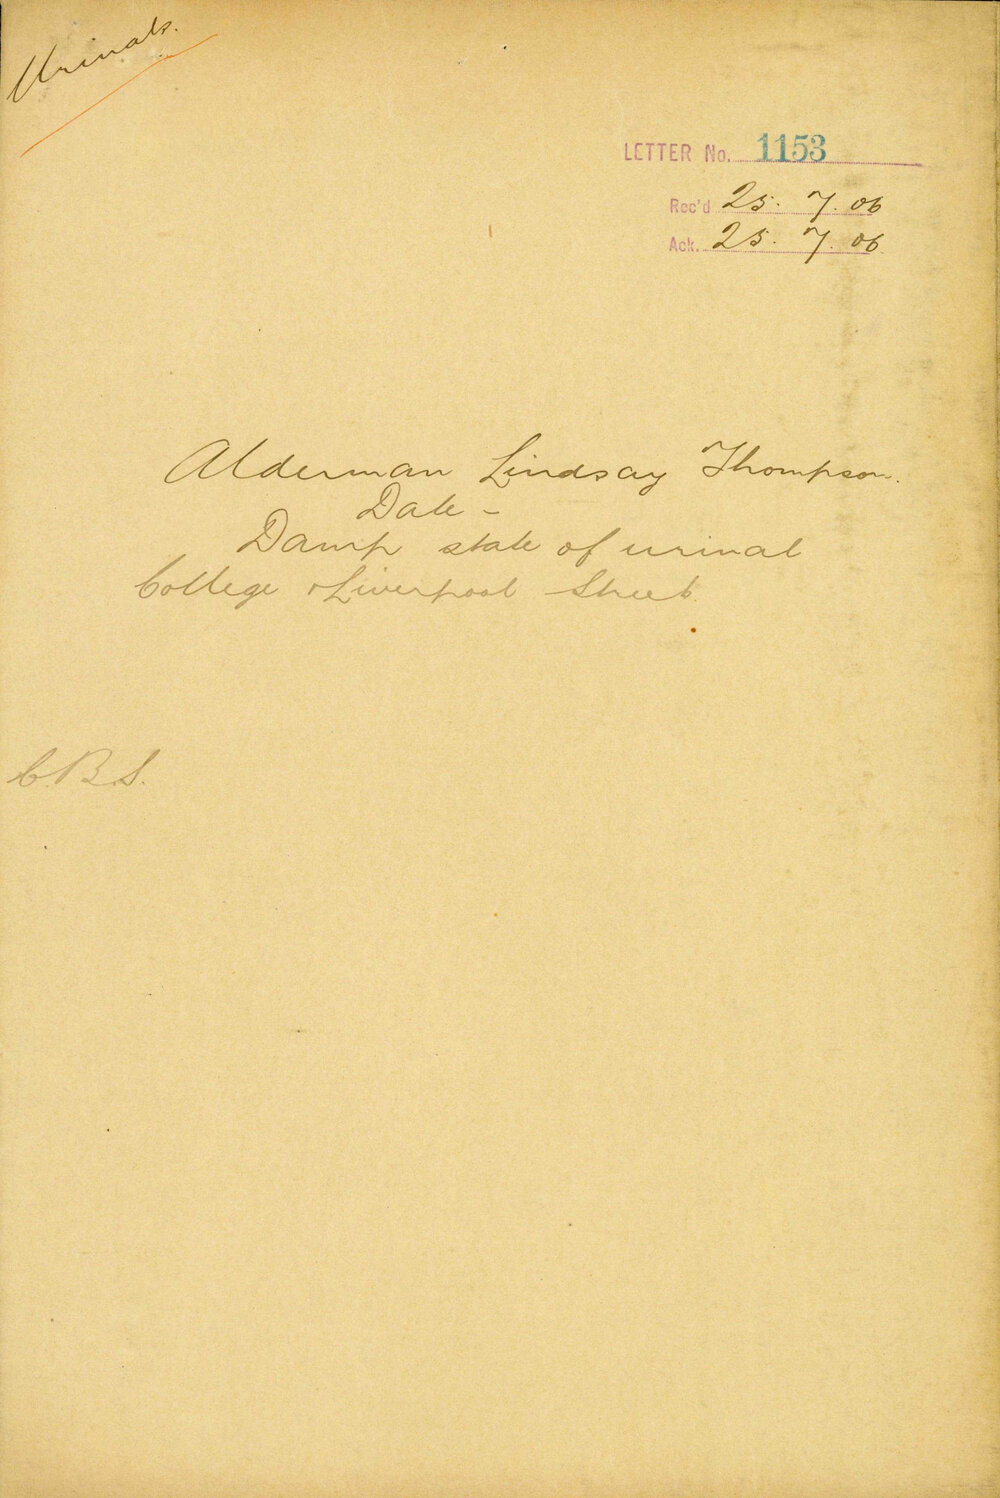 Urinals.
LETTER No. 1153
Rec'd 25. 7. 06
Ack. 25. 7. 06
Alderman Lindsay Thompson.
Date -
Damp state of urinal
College & Liverpool Street.
C.B.S.